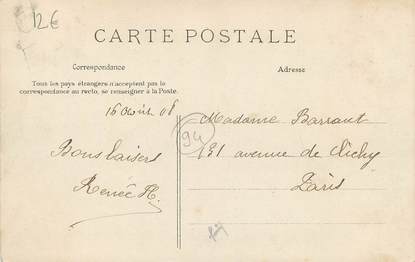 12€
CARTE POSTALE
Correspondance
Adresse
Tous les pays étrangers n'acceptent pas la
correspondance au recto, se renseigner à la Poste.
16 Août 08
Bons baisers
Renée H.
94
Madame Barraut
131 avenue de Clichy
Paris